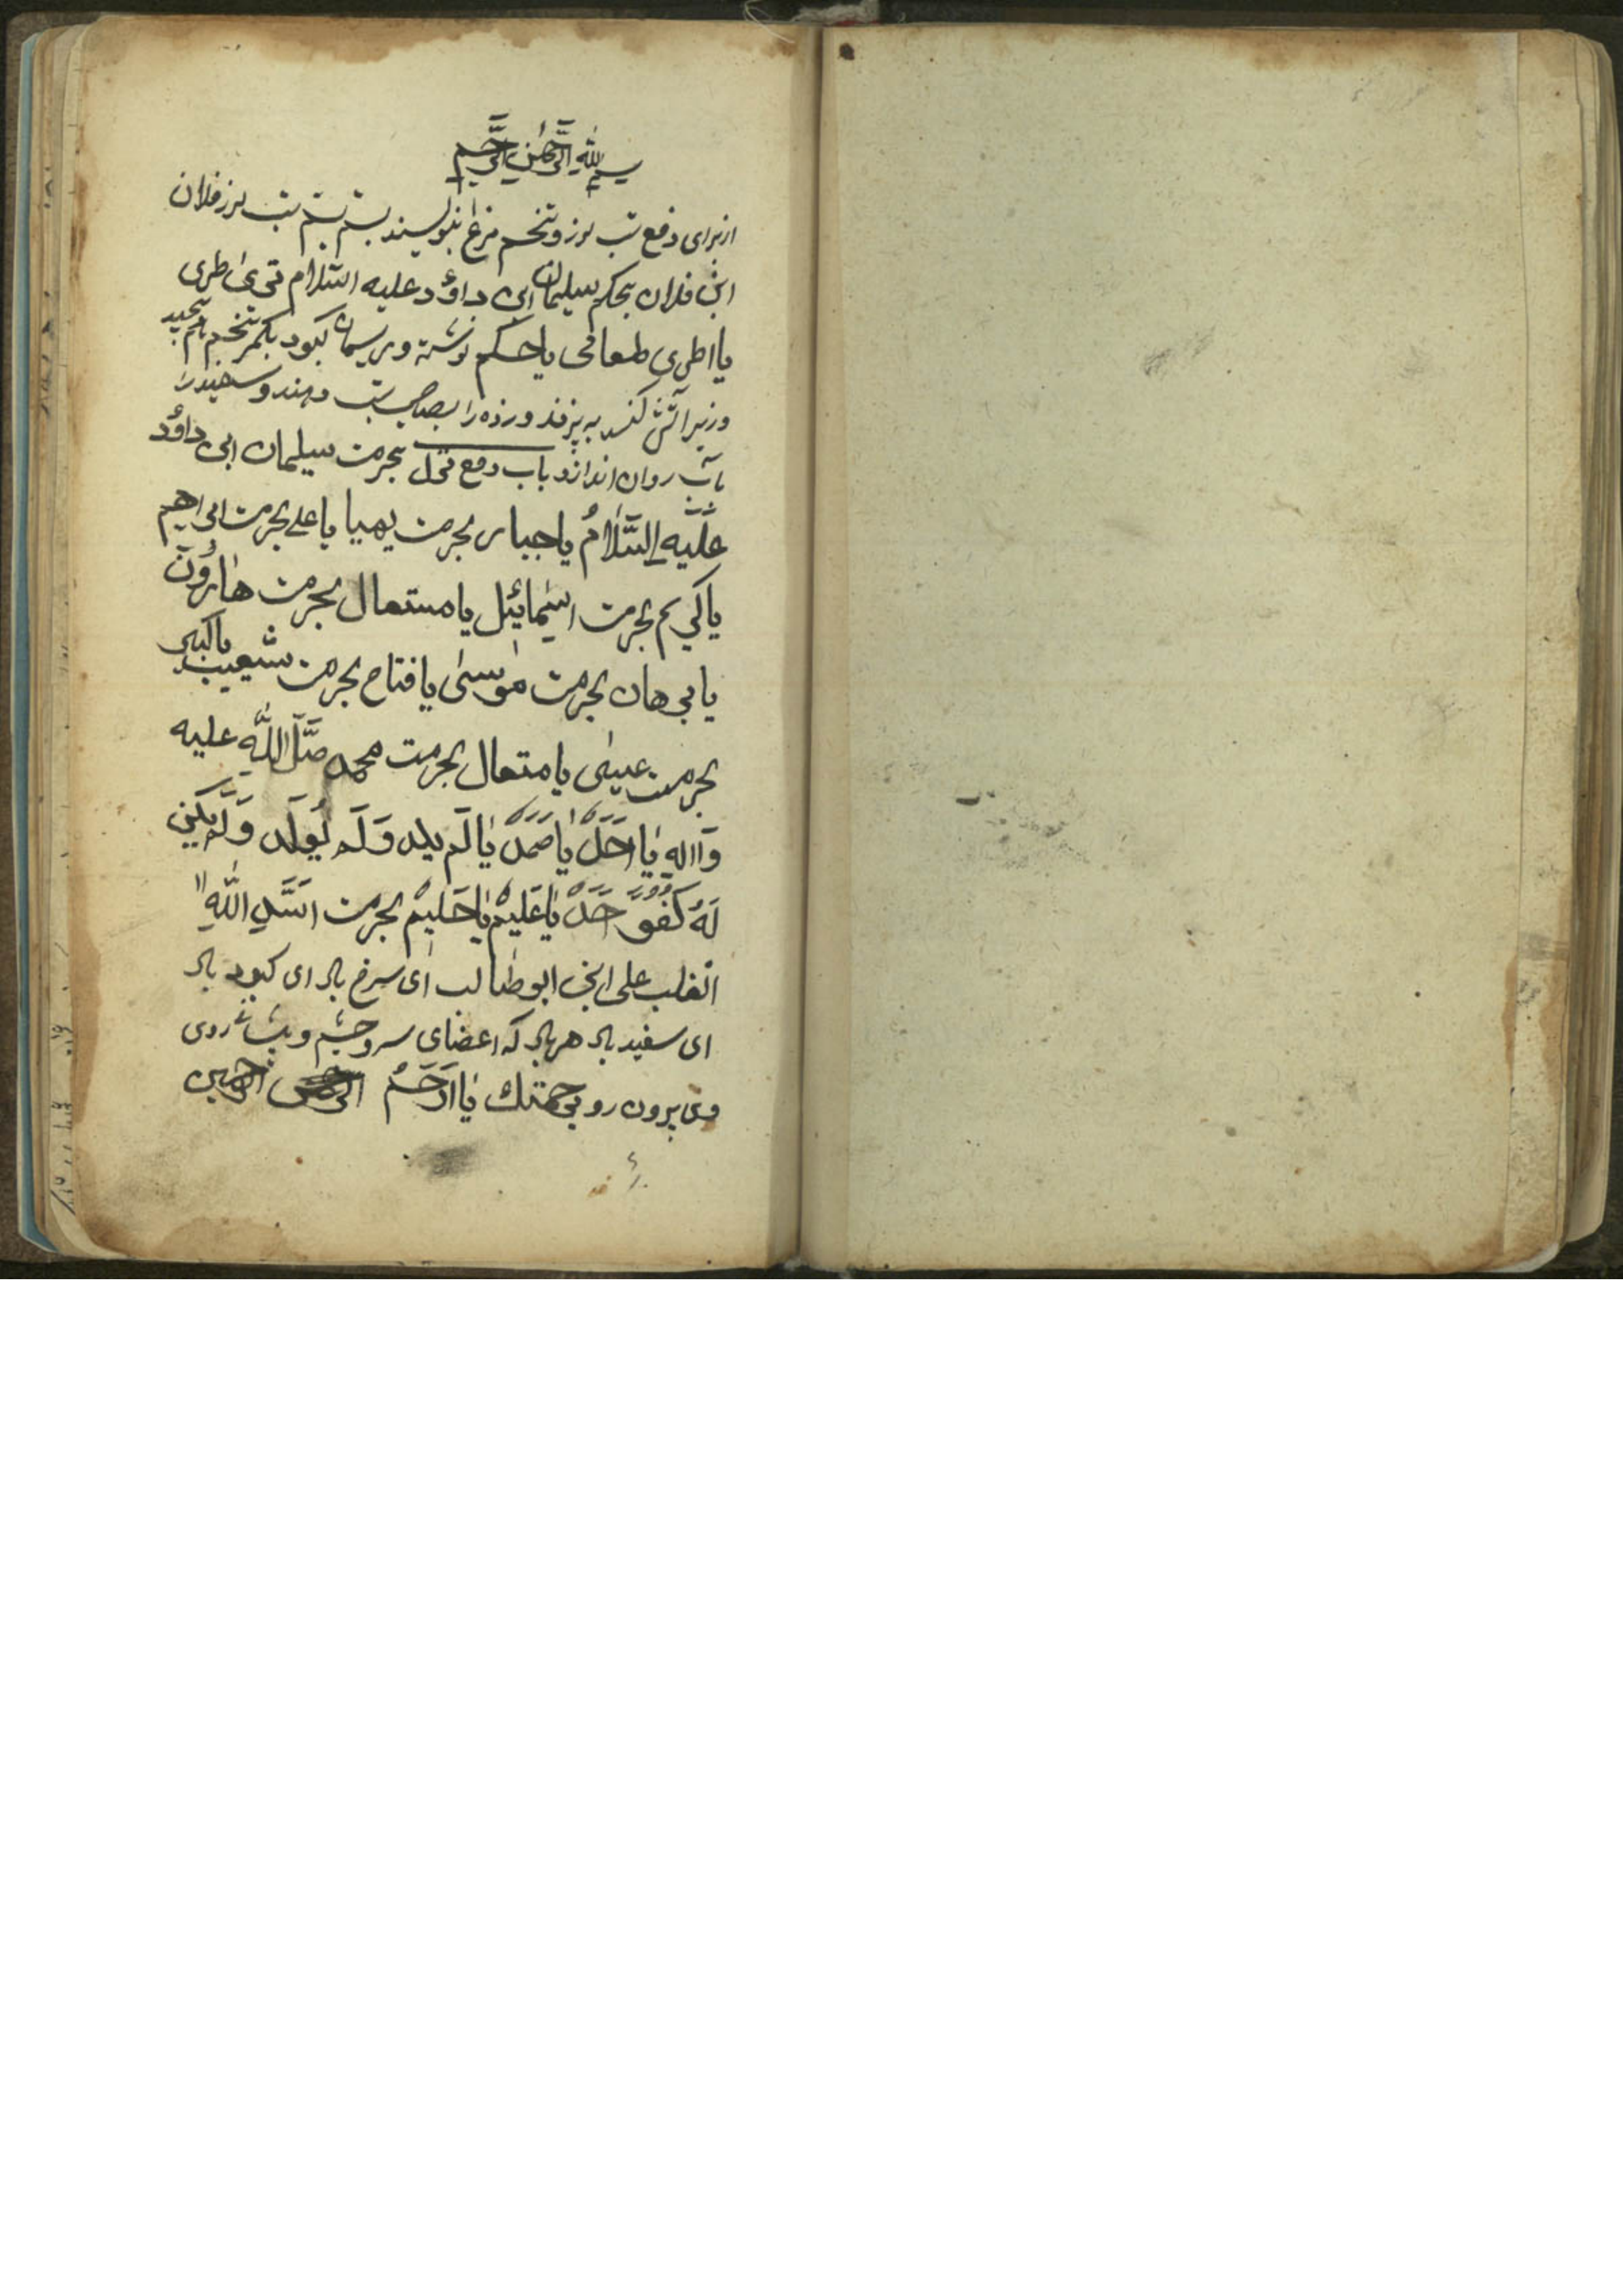 بسم الله الرحمن الرحيم
از برای دفع تب لرز و تخم مرغ بنویسند بستم بستم تب لرز فلان
ابن فلان بحکم سلیمان ابن داؤد علیه السلام
یا نوشته و بریسمان کبود بکمر تخم مرغ پیچید
و زیر آتش کنند به پزند و زرده را بصاحب تب دهند و سفیدرا
بآب روان اندازند باب دفع بحرمت سلیمان ابن داؤد
عليه السلام یا جبار بحرمت یا علی بحرمت ابراهیم
یا کریم بحرمت اسمائیل یا مستعال بحرمت هارون
یا برهان بحرمت موسی یا فتاح بحرمت شعیب یا کبیر
بحرمت عیسی یا متعال بحرمت محمد صَلَّ اللَّهِ علیه
وَاالهِ یا احد یا صمد یا لم یلد وَلَم یُولَد وَلَم یکن
لَهُ کفو حد یا عَلیم یا حَلیم بحرمت اسد الله
الغلب علی ابن ابو طالب ای سرخ باد ای کبود باد
ای سفید باد هر باد که اعضای سر و چشم و روی
وی بیرون رو برحمتک یا اَرحَمُ الرحمین